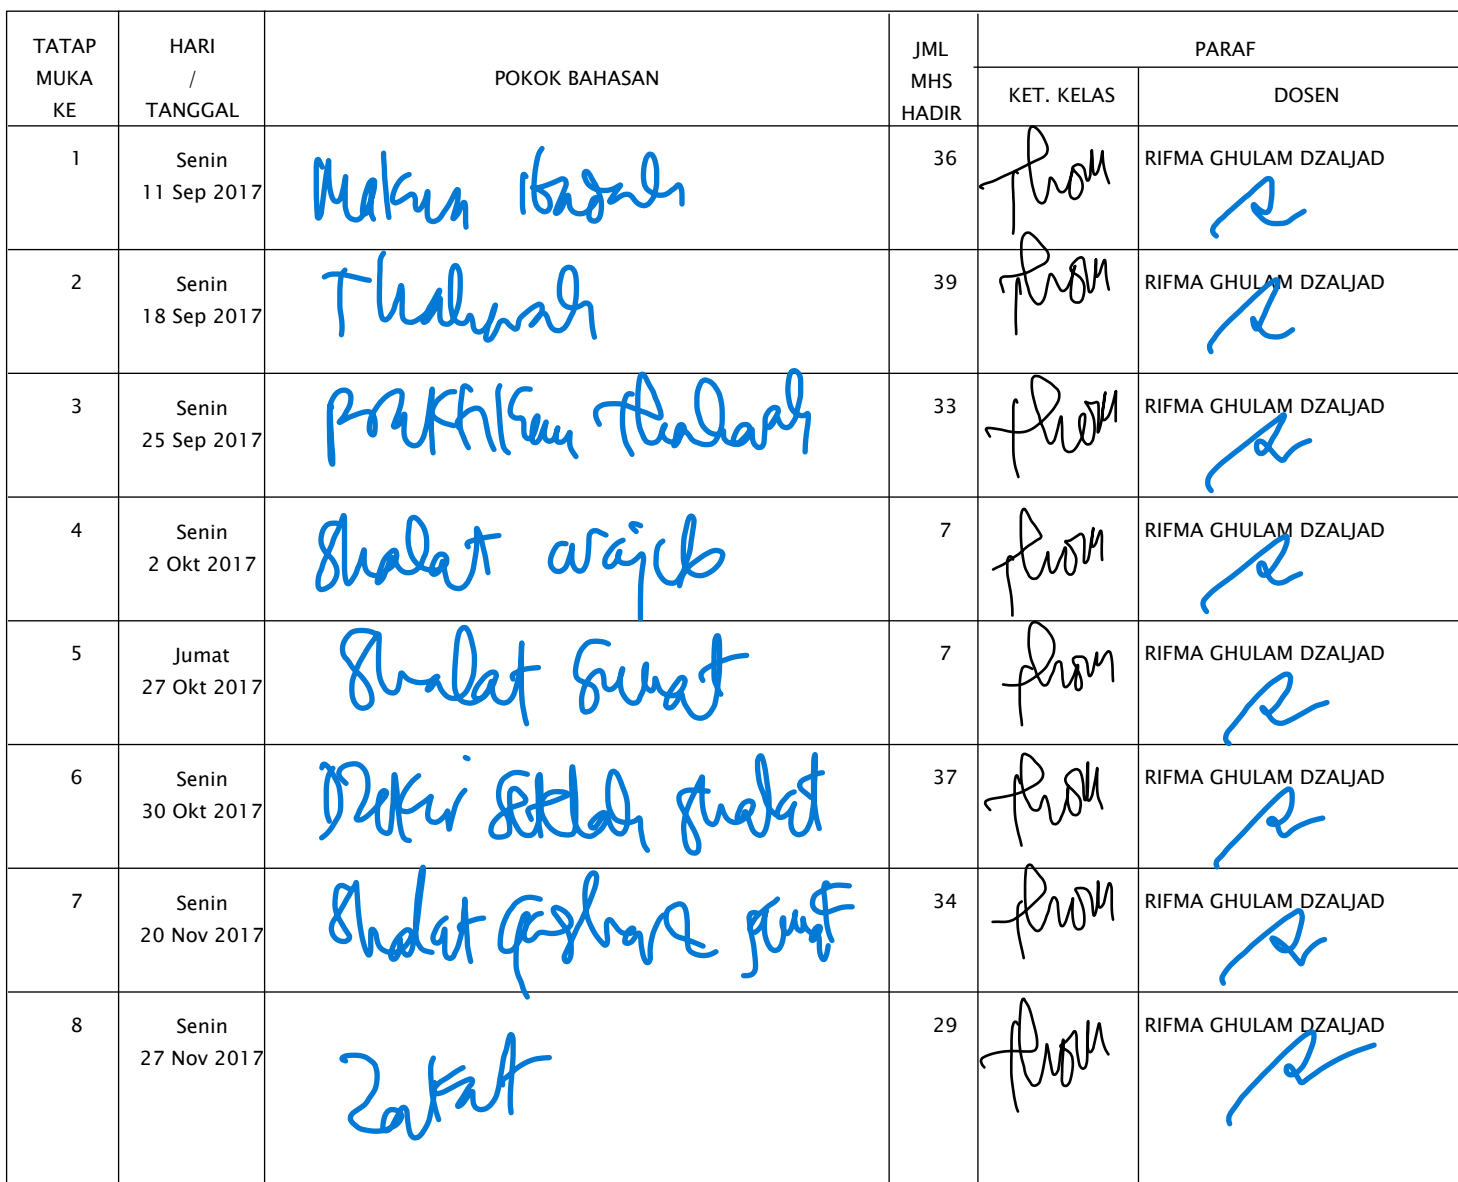 TATAP MUKA KE
HARI / TANGGAL
POKOK BAHASAN
JML MHS HADIR
PARAF
KET. KELAS
DOSEN
1
Senin
11 Sep 2017
Makna Ibadah
36
RIFMA GHULAM DZALJAD
2
Senin
18 Sep 2017
Thaharah
39
RIFMA GHULAM DZALJAD
3
Senin
25 Sep 2017
Praktikum Thaharah
33
RIFMA GHULAM DZALJAD
4
Senin
2 Okt 2017
Shalat wajib
7
RIFMA GHULAM DZALJAD
5
Jumat
27 Okt 2017
Shalat Sunat
7
RIFMA GHULAM DZALJAD
6
Senin
30 Okt 2017
Dzikir setelah shalat
37
RIFMA GHULAM DZALJAD
7
Senin
20 Nov 2017
Shalat qashar
34
RIFMA GHULAM DZALJAD
8
Senin
27 Nov 2017
Zakat
29
RIFMA GHULAM DZALJAD